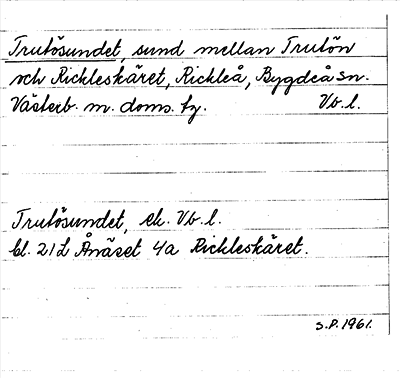 Trutösundet, sund mellan Trutön
och Rickleskäret, Rickleå, Bygdeå sn.
Västerb. m. doms. tg. Vb. l.
Trutösundet, ek. Vb. l.
bl. 21L Ånäset 4a Rickleskäret.
S.P. 1961.